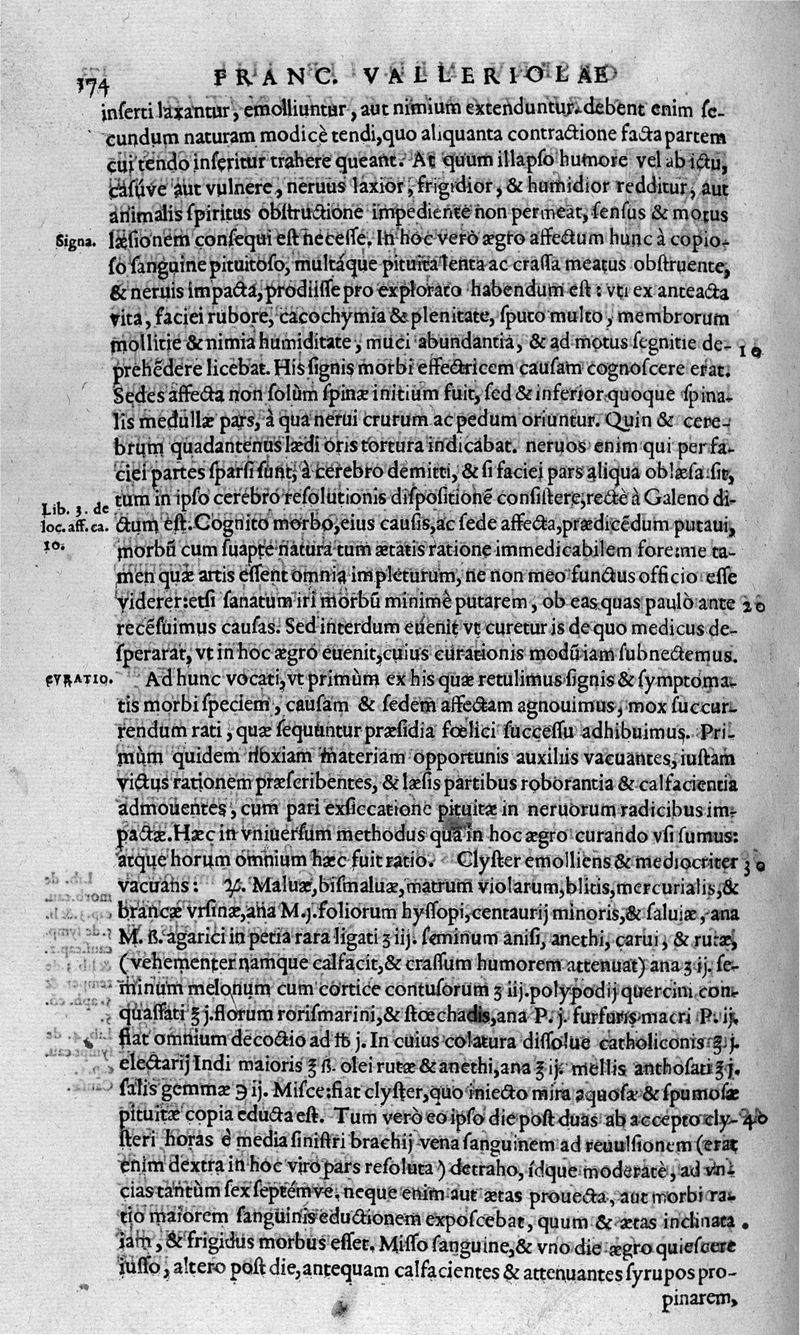 174 FRANC. VALLERIOLAE
inſerti laxantur, emolliuntur, aut nimium extenduntur. debent enim ſe-
cundum naturam modicè tendi, quo aliquanta contractione facta partem
cui tendo inſeritur trahere queant. At quum illapſo humore vel ab ictu,
caſúve aut vulnere, neruus laxior, frigidior, & humidior redditur, aut
animalis ſpiritus obſtructione impediente non permeat, ſenſus & motus
Signa. læſionem conſequi eſt neceſſe. In hoc verò ægro affectum hunc à copio-
ſo ſanguine pituitoſo, multáque pituita lenta ac craſſa meatus obſtruente,
& neruis impacta, prodiiſſe pro explorato habendum eſt: vti ex anteacta
vita, faciei rubore, cacochymia & plenitate, ſputo multo, membrorum
mollitie & nimia humiditate, muci abundantia, & ad motus ſegnitie de- 10
prehẽdere licebat. His ſignis morbi effectricem cauſam cognoſcere erat.
Sedes affecta non ſolùm ſpinæ initium fuit, ſed & inferior quoque ſpina-
lis medullæ pars, à qua nerui crurum ac pedum oriuntur. Quin & cere-
brum quadantenus lædi oris tortura indicabat. neruos enim qui per fa-
ciei partes ſparſi ſunt, à cerebro demitti, & ſi faciei pars aliqua oblæſa ſit,
Lib. 3. de tum in ipſo cerebro reſolutionis diſpoſitionẽ conſiſtere, rectè à Galeno di-
loc. aff. ca. ctum eſt. Cognito morbo, eius cauſis, ac ſede affecta, prædicẽdum putaui,
10. morbũ cum ſuapte natura tum ætatis ratione immedicabilem fore: me ta-
men quæ artis eſſent omnia impleturum, ne non meo functus officio eſſe
viderer: etſi ſanatum iri morbũ minimè putarem, ob eas quas paulò ante 20
recẽſuimus cauſas. Sed interdum euenit vt curetur is de quo medicus de-
ſperarat, vt in hoc ægro euenit, cuius curationis modũ iam ſubnectemus.
CVRATIO. Ad hunc vocati, vt primùm ex his quæ retulimus ſignis & ſymptoma-
tis morbi ſpeciem, cauſam & ſedem affectam agnouimus, mox ſuccur-
rendum rati, quæ ſequuntur præſidia fœlici ſucceſſu adhibuimus. Pri-
mùm quidem noxiam materiam opportunis auxiliis vacuantes, iuſtam
victus rationem præſcribentes, & læſis partibus roborantia & calfacientia
admouentes, cum pari exſiccatione pituitæ in neruorum radicibus im-
pactæ. Hæc in vniuerſum methodus qua in hoc ægro curando vſi ſumus:
atque horum omnium hæc fuit ratio. Clyſter emolliens & mediocriter 30
vacuans: ℞. Maluæ, biſmaluæ, matrum violarum, blitis, mercurialis, &
brancæ vrſinæ, ana M. j. foliorum hyſſopi, centaurij minoris, & ſaluiæ, ana
M. ß. agarici in petia rara ligati ʒ iij. ſeminum aniſi, anethi, carui, & rutæ,
(vehementer namque calfacit, & craſſum humorem attenuat) ana ʒ ij. ſe-
minum melonum cum cortice contuſorum ʒ iij. polypodij quercini con-
quaſſati ℥ j. florum roriſmarini, & ſtœchadis, ana P. j. furfuris macri P. ij.
fiat omnium decoctio ad ℔ j. In cuius colatura diſſolue catholiconis ℥ j.
electarij Indi maioris ℥ ß. olei rutæ & anethi, ana ℥ ij. mellis anthoſati ℥ j.
ſalis gemmæ ℈ ij. Miſce: fiat clyſter, quo iniecto mira aquoſæ & ſpumoſæ
pituitæ copia educta eſt. Tum verò eo ipſo die poſt duas ab accepto cly- 40
ſteri horas è media ſiniſtri brachij vena ſanguinem ad reuulſionem (erat
enim dextra in hoc viro pars reſoluta) detraho, idque moderatè, ad vn-
cias tantùm ſex ſeptémve. neque enim aut ætas prouecta, aut morbi ra-
tio maiorem ſanguinis eductionem expoſcebat, quum & ætas inclinata
iam, & frigidus morbus eſſet. Miſſo ſanguine, & vno die ægro quieſcere
iuſſo, altero poſt die, antequam calfacientes & attenuantes ſyrupos pro-
pinarem,